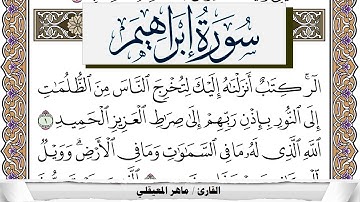 سورة إبراهيم
الٓر ۚ كِتَٰبٌ أَنزَلْنَٰهُ إِلَيْكَ لِتُخْرِجَ ٱلنَّاسَ مِنَ ٱلظُّلُمَٰتِ
إِلَى ٱلنُّورِ بِإِذْنِ رَبِّهِمْ إِلَىٰ صِرَٰطِ ٱلْعَزِيزِ ٱلْحَمِيدِ ١
ٱللَّهِ ٱلَّذِى لَهُۥ مَا فِى ٱلسَّمَٰوَٰتِ وَمَا فِى ٱلْأَرْضِ ۗ وَوَيْلٌ
القارئ / ماهر المعيقلي